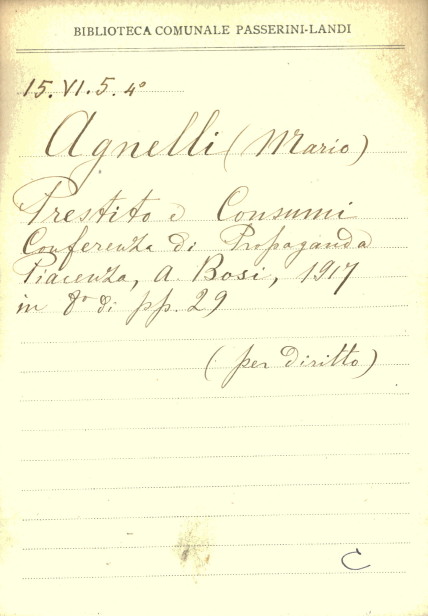 BIBLIOTECA COMUNALE PASSERINI-LANDI
15.VI.5.4°
Agnelli (Mario)
Prestito e Consumi
Conferenza di Propaganda
Piacenza, A. Bosi, 1917
in 8° di pp. 29
(per diritto)
C